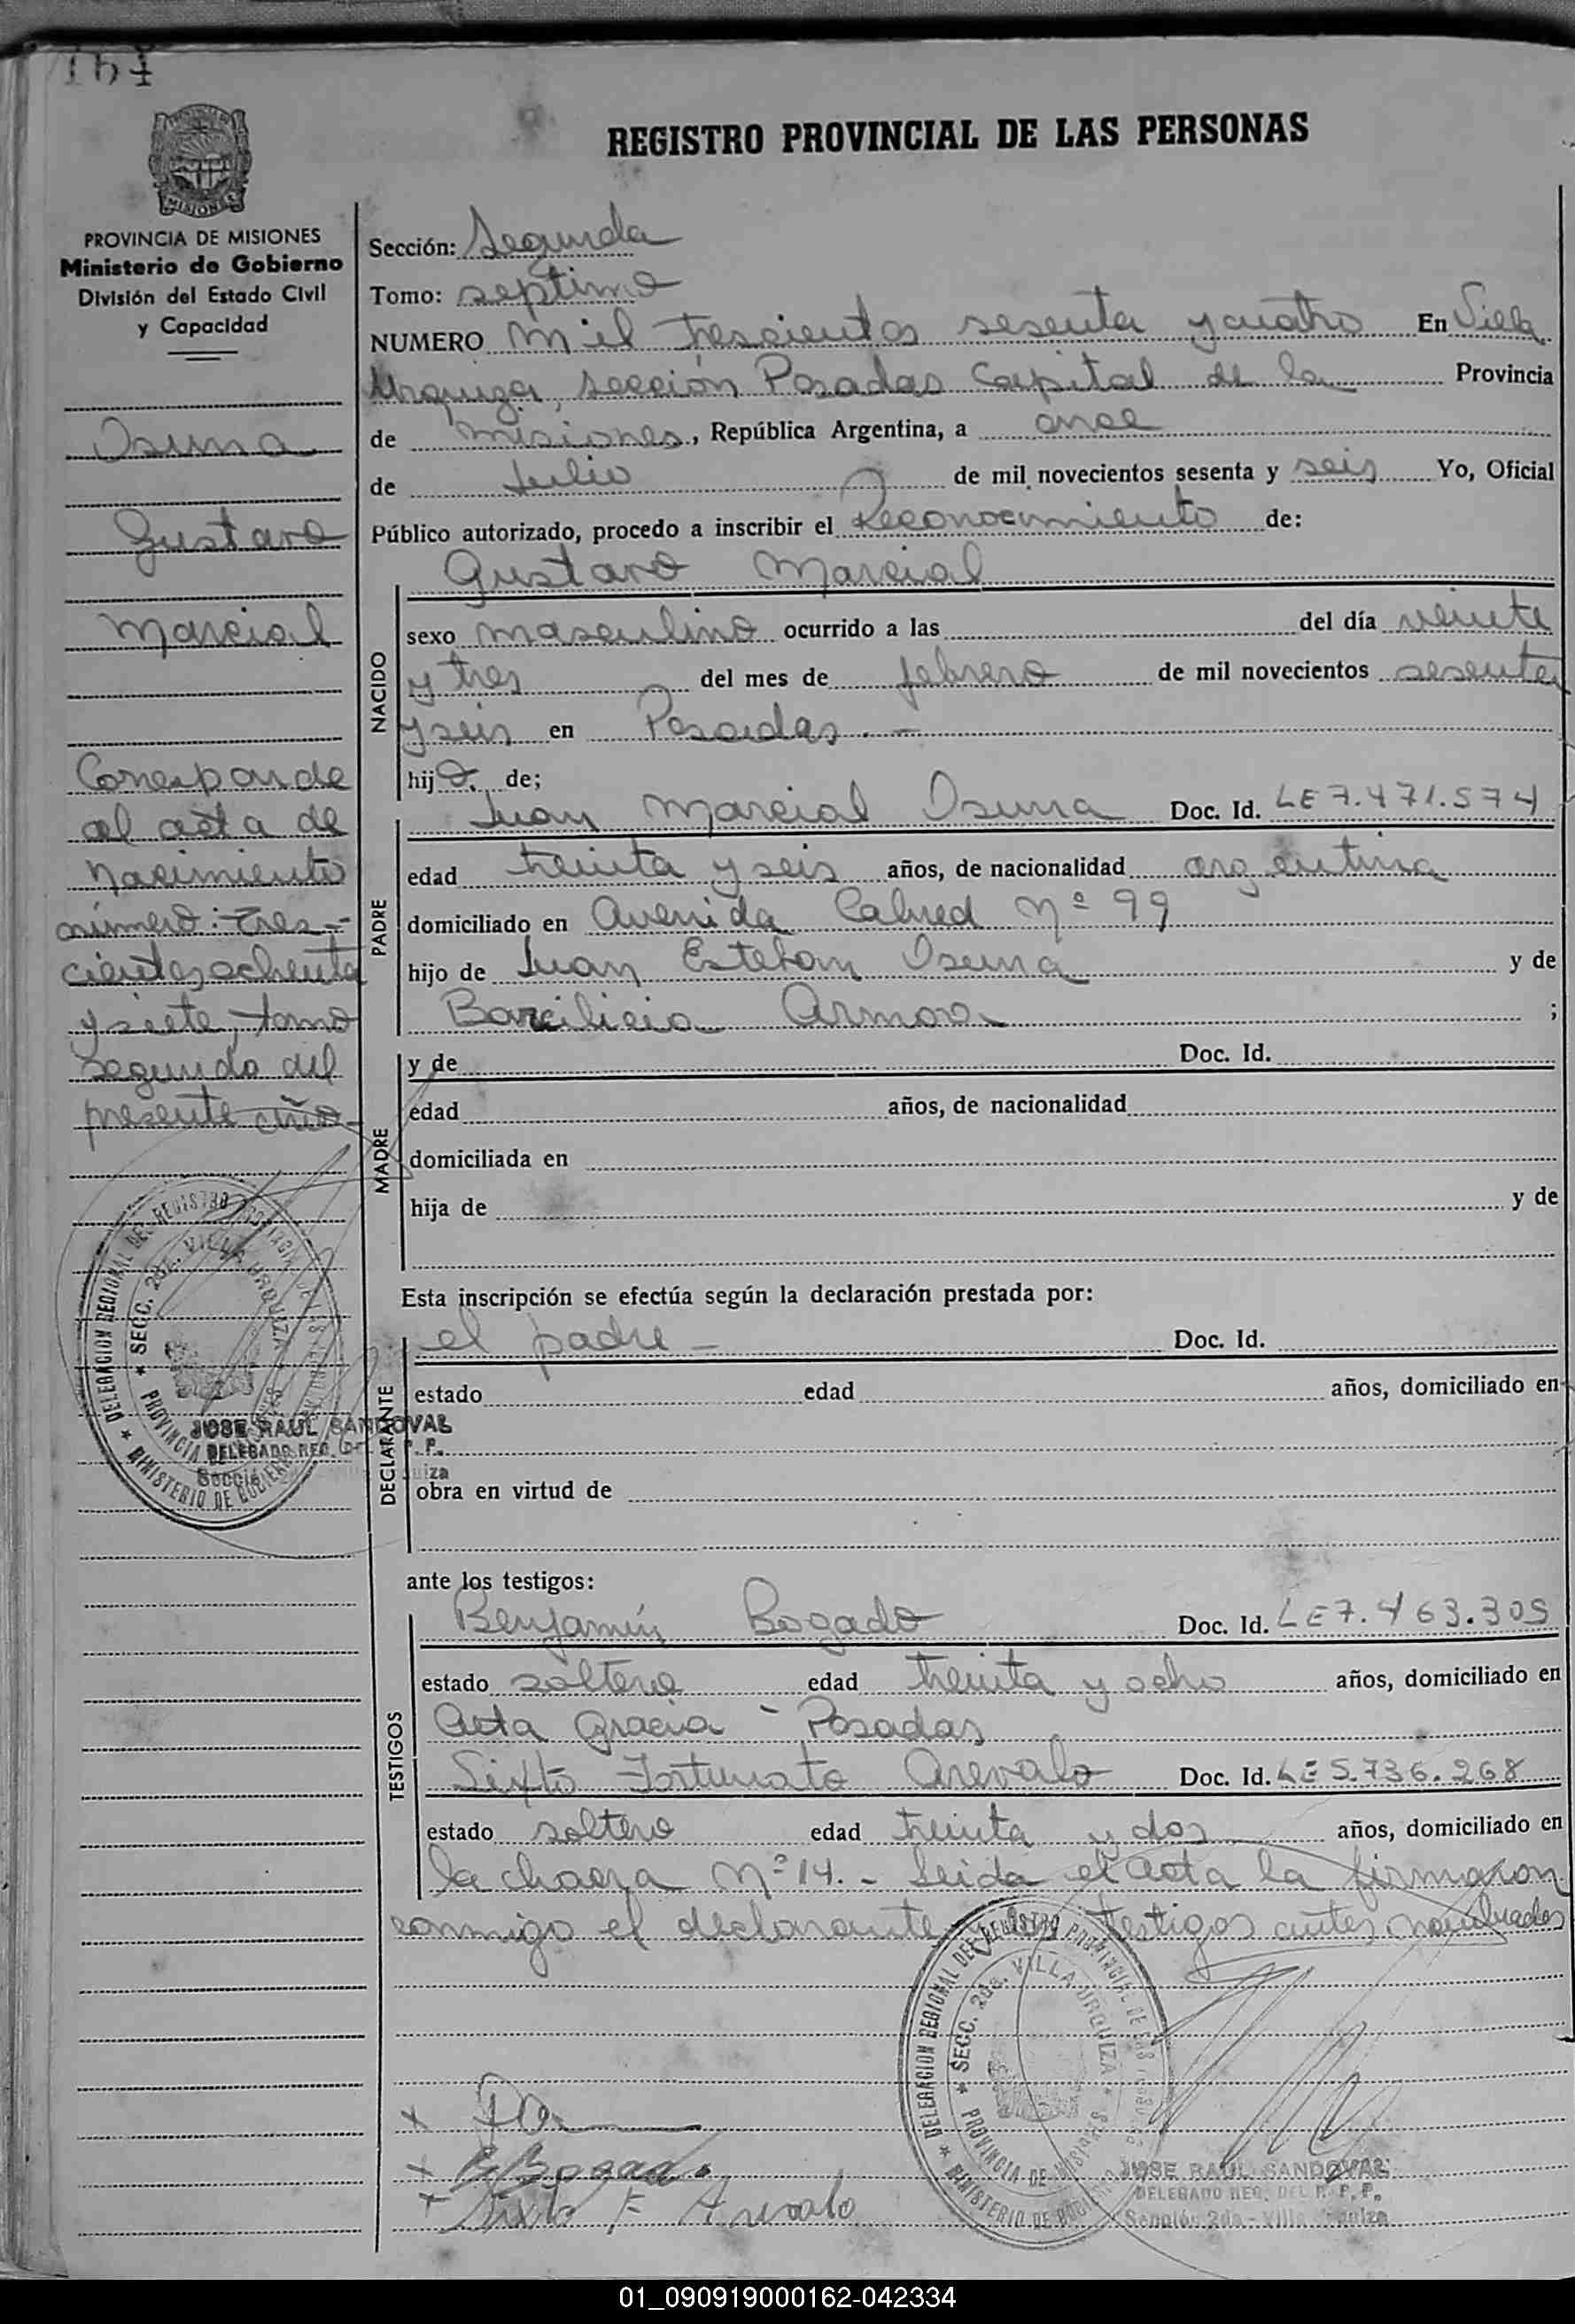 REGISTRO PROVINCIAL DE LAS PERSONAS
MISIONES
PROVINCIA DE MISIONES
Ministerio de Gobierno
División del Estado Civil
y Capacidad
Osuna
Gustavo
Marcial
Corresponde
al acta de
nacimiento
número: tres-
cientos ochenta
y siete, tomo
segundo del
presente año
JOSE RAUL SANDOVAL
Sección: Segunda
Tomo: septimo
NUMERO mil trescientos sesenta y cuatro En Villa
Urquiza, sección Posadas Capital de la Provincia
de misiones, República Argentina, a once
de Julio de mil novecientos sesenta y seis Yo, Oficial
Público autorizado, procedo a inscribir el Reconocimiento de:
Gustavo Marcial
NACIDO
sexo masculino ocurrido a las del día veinte
y tres del mes de febrero de mil novecientos sesenta
y seis en Posadas. -
hijo de;
Juan Marcial Osuna Doc. Id. LE 7.471.574
PADRE
edad treinta y seis años, de nacionalidad argentina
domiciliado en Avenida Cabred Nº 99
hijo de Juan Esteban Osuna y de
Armoa ;
MADRE
y de Doc. Id.
edad años, de nacionalidad
domiciliada en
hija de y de
Esta inscripción se efectúa según la declaración prestada por:
DECLARANTE
el padre - Doc. Id.
estado edad años, domiciliado en
obra en virtud de
ante los testigos:
TESTIGOS
Benjamín Bogado Doc. Id. LE 7.463.305
estado soltero edad treinta y ocho años, domiciliado en
Acta Gracia - Posadas
Sixto Fortunato Arevalo Doc. Id. LE 5.736.268
estado soltero edad treinta y dos años, domiciliado en
la chacra Nº 14. - Leida el acta la firmaron
conmigo el declarante y los testigos antes nombrados
DELEGACION REGIONAL DEL REGISTRO PROVINCIAL DE LAS PERSONAS
SECC. 2da. VILLA URQUIZA
PROVINCIA DE MISIONES
MINISTERIO DE GOBIERNO
B Bogado
Sixto F Arevalo
JOSE RAUL SANDOVAL
DELEGADO REG. DEL R. P. P.
Sección 2da - Villa Urquiza
01_090919000162-042334